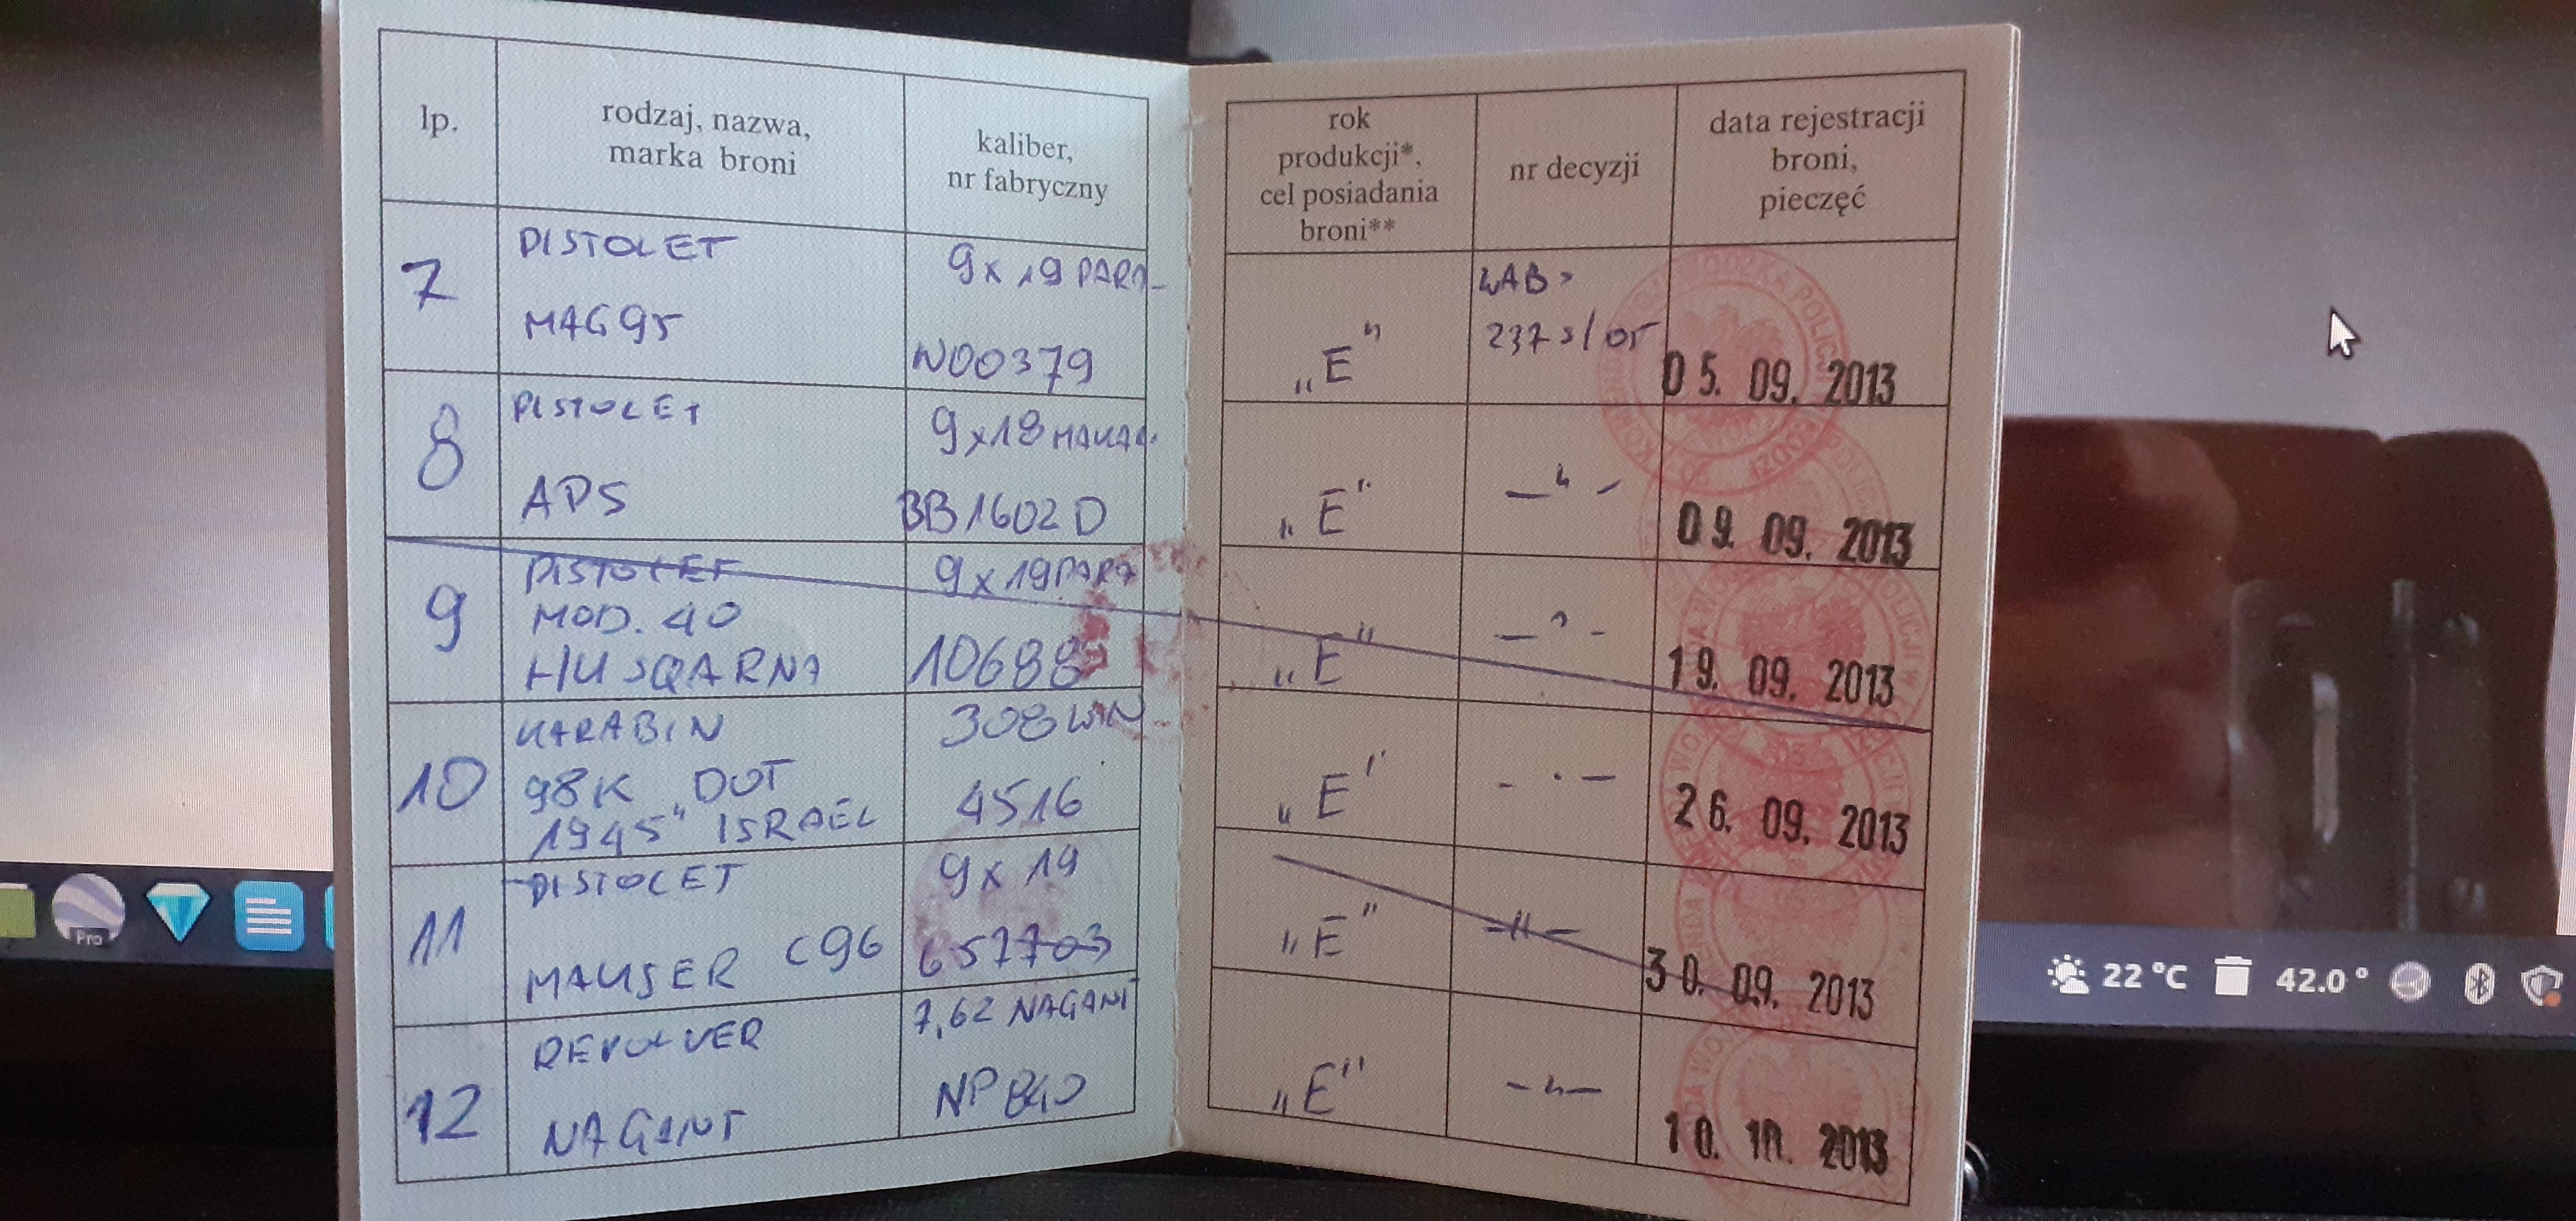 lp.
rodzaj, nazwa,
marka broni
kaliber,
nr fabryczny
rok
produkcji*,
cel posiadania
broni**
nr decyzji
data rejestracji
broni,
pieczęć
7
PISTOLET
MAG 95
9x19 PARA
N00379
„E"
05. 09. 2013
8
PISTOLET
APS
9x18 MAKAR.
BB1602D
„E"
—"—
09. 09. 2013
9
PISTOLET
MOD. 40
HUSQARNA
9x19 PARA
10688
„E"
—"—
19. 09. 2013
10
KARABIN
98K „DOT
1945" ISRAEL
308 WIN
4516
„E"
—"—
26. 09. 2013
11
PISTOLET
MAUSER C96
9x19
657703
„E"
—"—
30. 09. 2013
12
REVOLVER
NAGANT
7,62 NAGANT
NP840
„E"
—"—
10. 10. 2013
Pro
22 °C
42.0 °